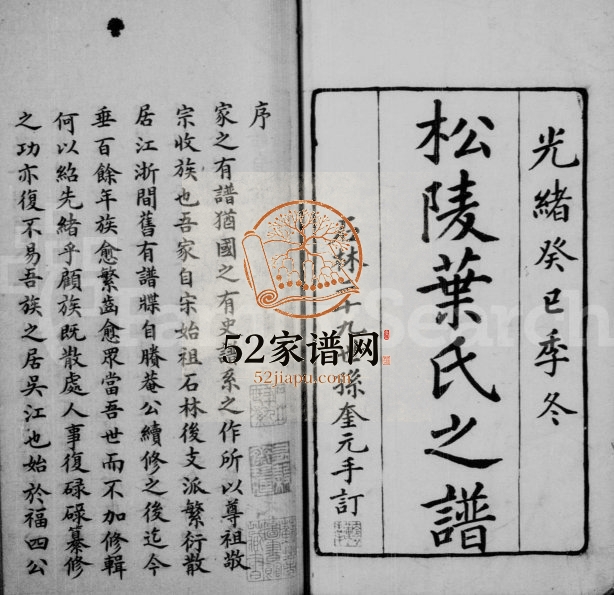 光緒癸巳季冬
松陵葉氏之譜
石林二十九世孫奎元手訂
序
家之有譜猶國之有史譜系之作所以尊祖敬
宗收族也吾家自宋始祖石林後支派繁衍散
居江浙間舊有譜牒自勝菴公續修之後迄今
垂百餘年族愈繁齒愈眾當吾世而不加修輯
何以紹先緒乎顧族既散處人事復碌碌纂修
之功亦復不易吾族之居吳江也始於福四公
52家谱网
52jiapu.com